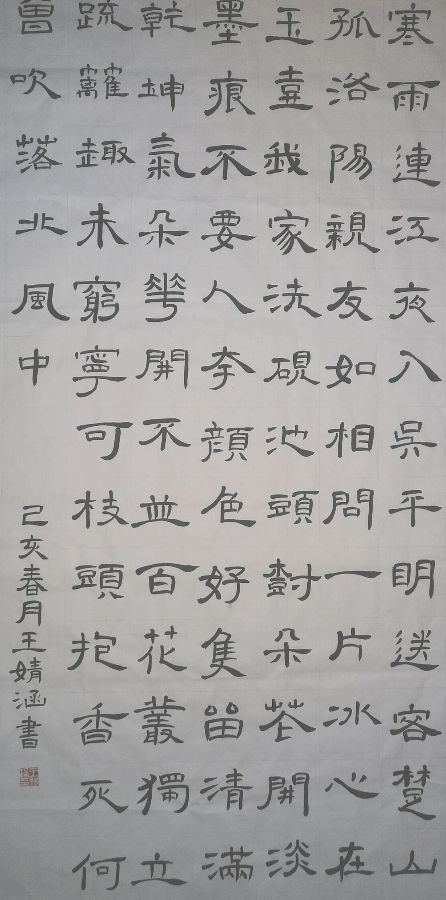 寒雨連江夜入吳平明送客楚山
孤洛陽親友如相問一片冰心在
玉壺我家洗硯池頭樹朵花開淡
墨痕不要人夸顏色好隻留清滿
乾坤氣朵華開不並百花叢獨立
疏籬趣未窮寧可枝頭抱香死何
曾吹落北風中
己亥春月王婧涵書